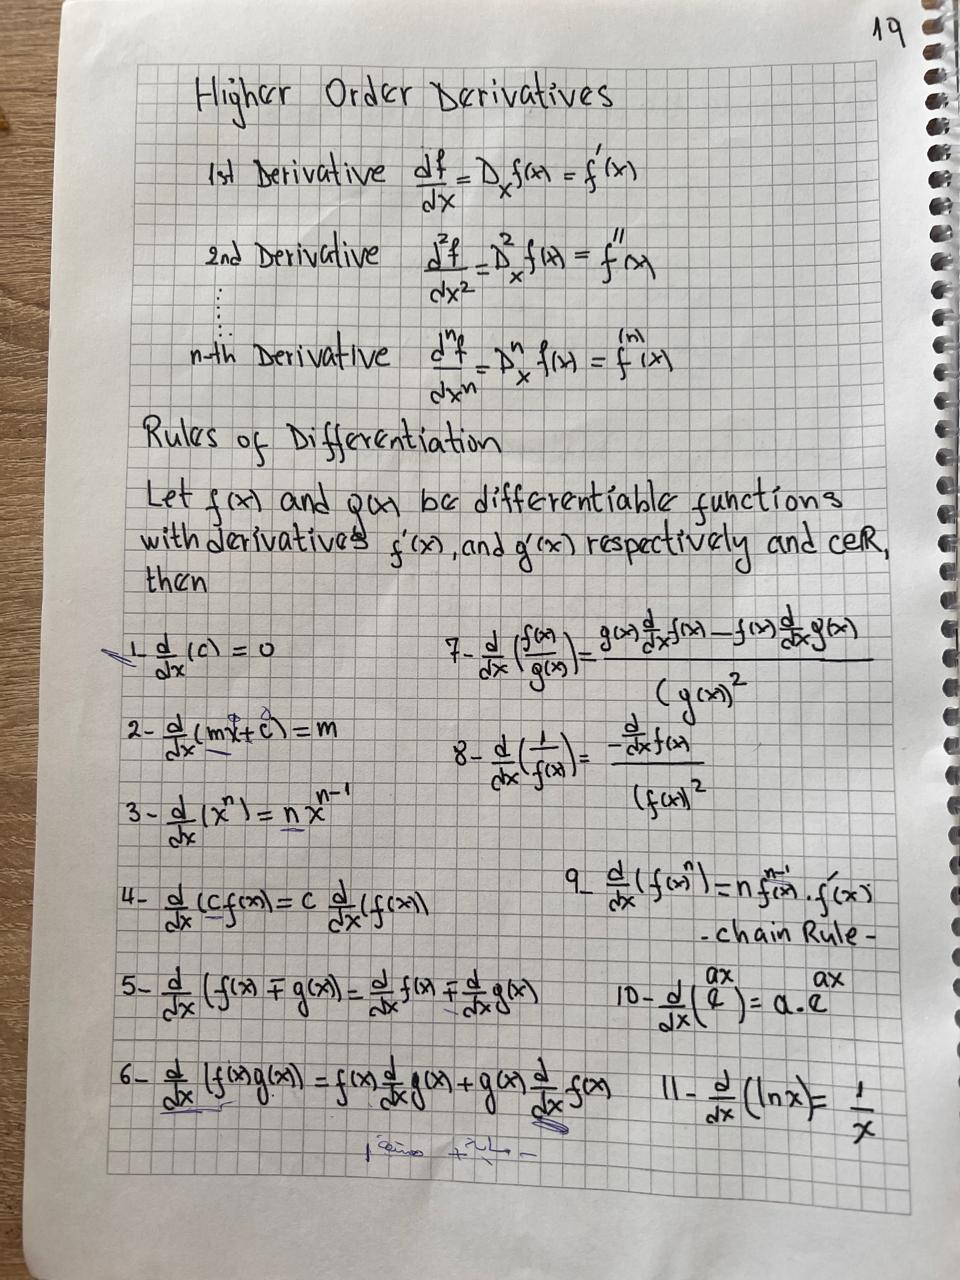 19
Higher Order Derivatives
1st Derivative df/dx = Dₓ f(x) = f′(x)
2nd Derivative d²f/dx² = D²ₓ f(x) = f″(x)
n-th Derivative dⁿf/dxⁿ = Dⁿₓ f(x) = f⁽ⁿ⁾(x)
Rules of Differentiation
Let f(x) and g(x) be differentiable functions
with derivatives f′(x), and g′(x) respectively and c∈R,
then
1- d/dx (c) = 0
2- d/dx (mx+c) = m
3- d/dx (xⁿ) = n xⁿ⁻¹
4- d/dx (c f(x)) = c d/dx (f(x))
5- d/dx (f(x) ∓ g(x)) = d/dx f(x) ∓ d/dx g(x)
6- d/dx (f(x)g(x)) = f(x) d/dx g(x) + g(x) d/dx f(x)
7- d/dx (f(x)/g(x)) = (g(x) d/dx f(x) – f(x) d/dx g(x)) / (g(x))²
8- d/dx (1/f(x)) = (- d/dx f(x)) / (f(x))²
9- d/dx (f(x)ⁿ) = n f(x)ⁿ⁻¹ . f′(x)
- chain Rule -
10- d/dx (e^ax) = a.e^ax
11- d/dx (ln x) = 1/x